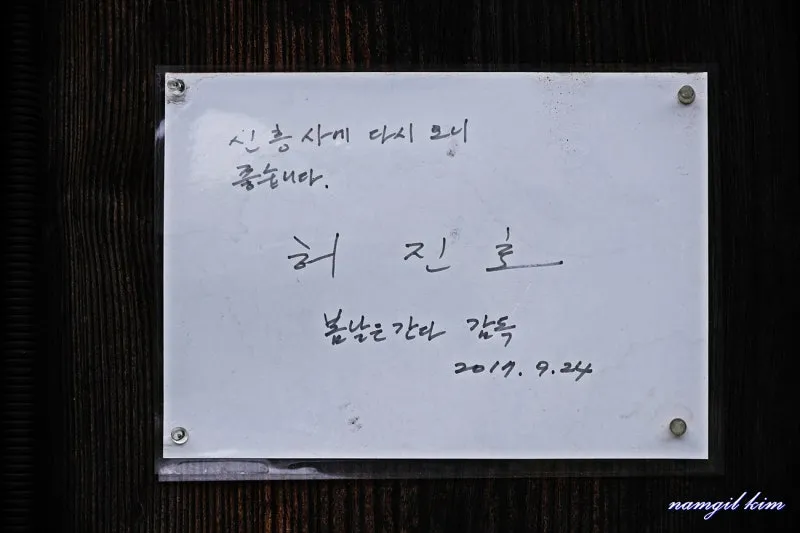 신흥사에 다시 오니
좋습니다.
허 진 호
봄날은 간다 감독
2017. 9. 24
namgil kim